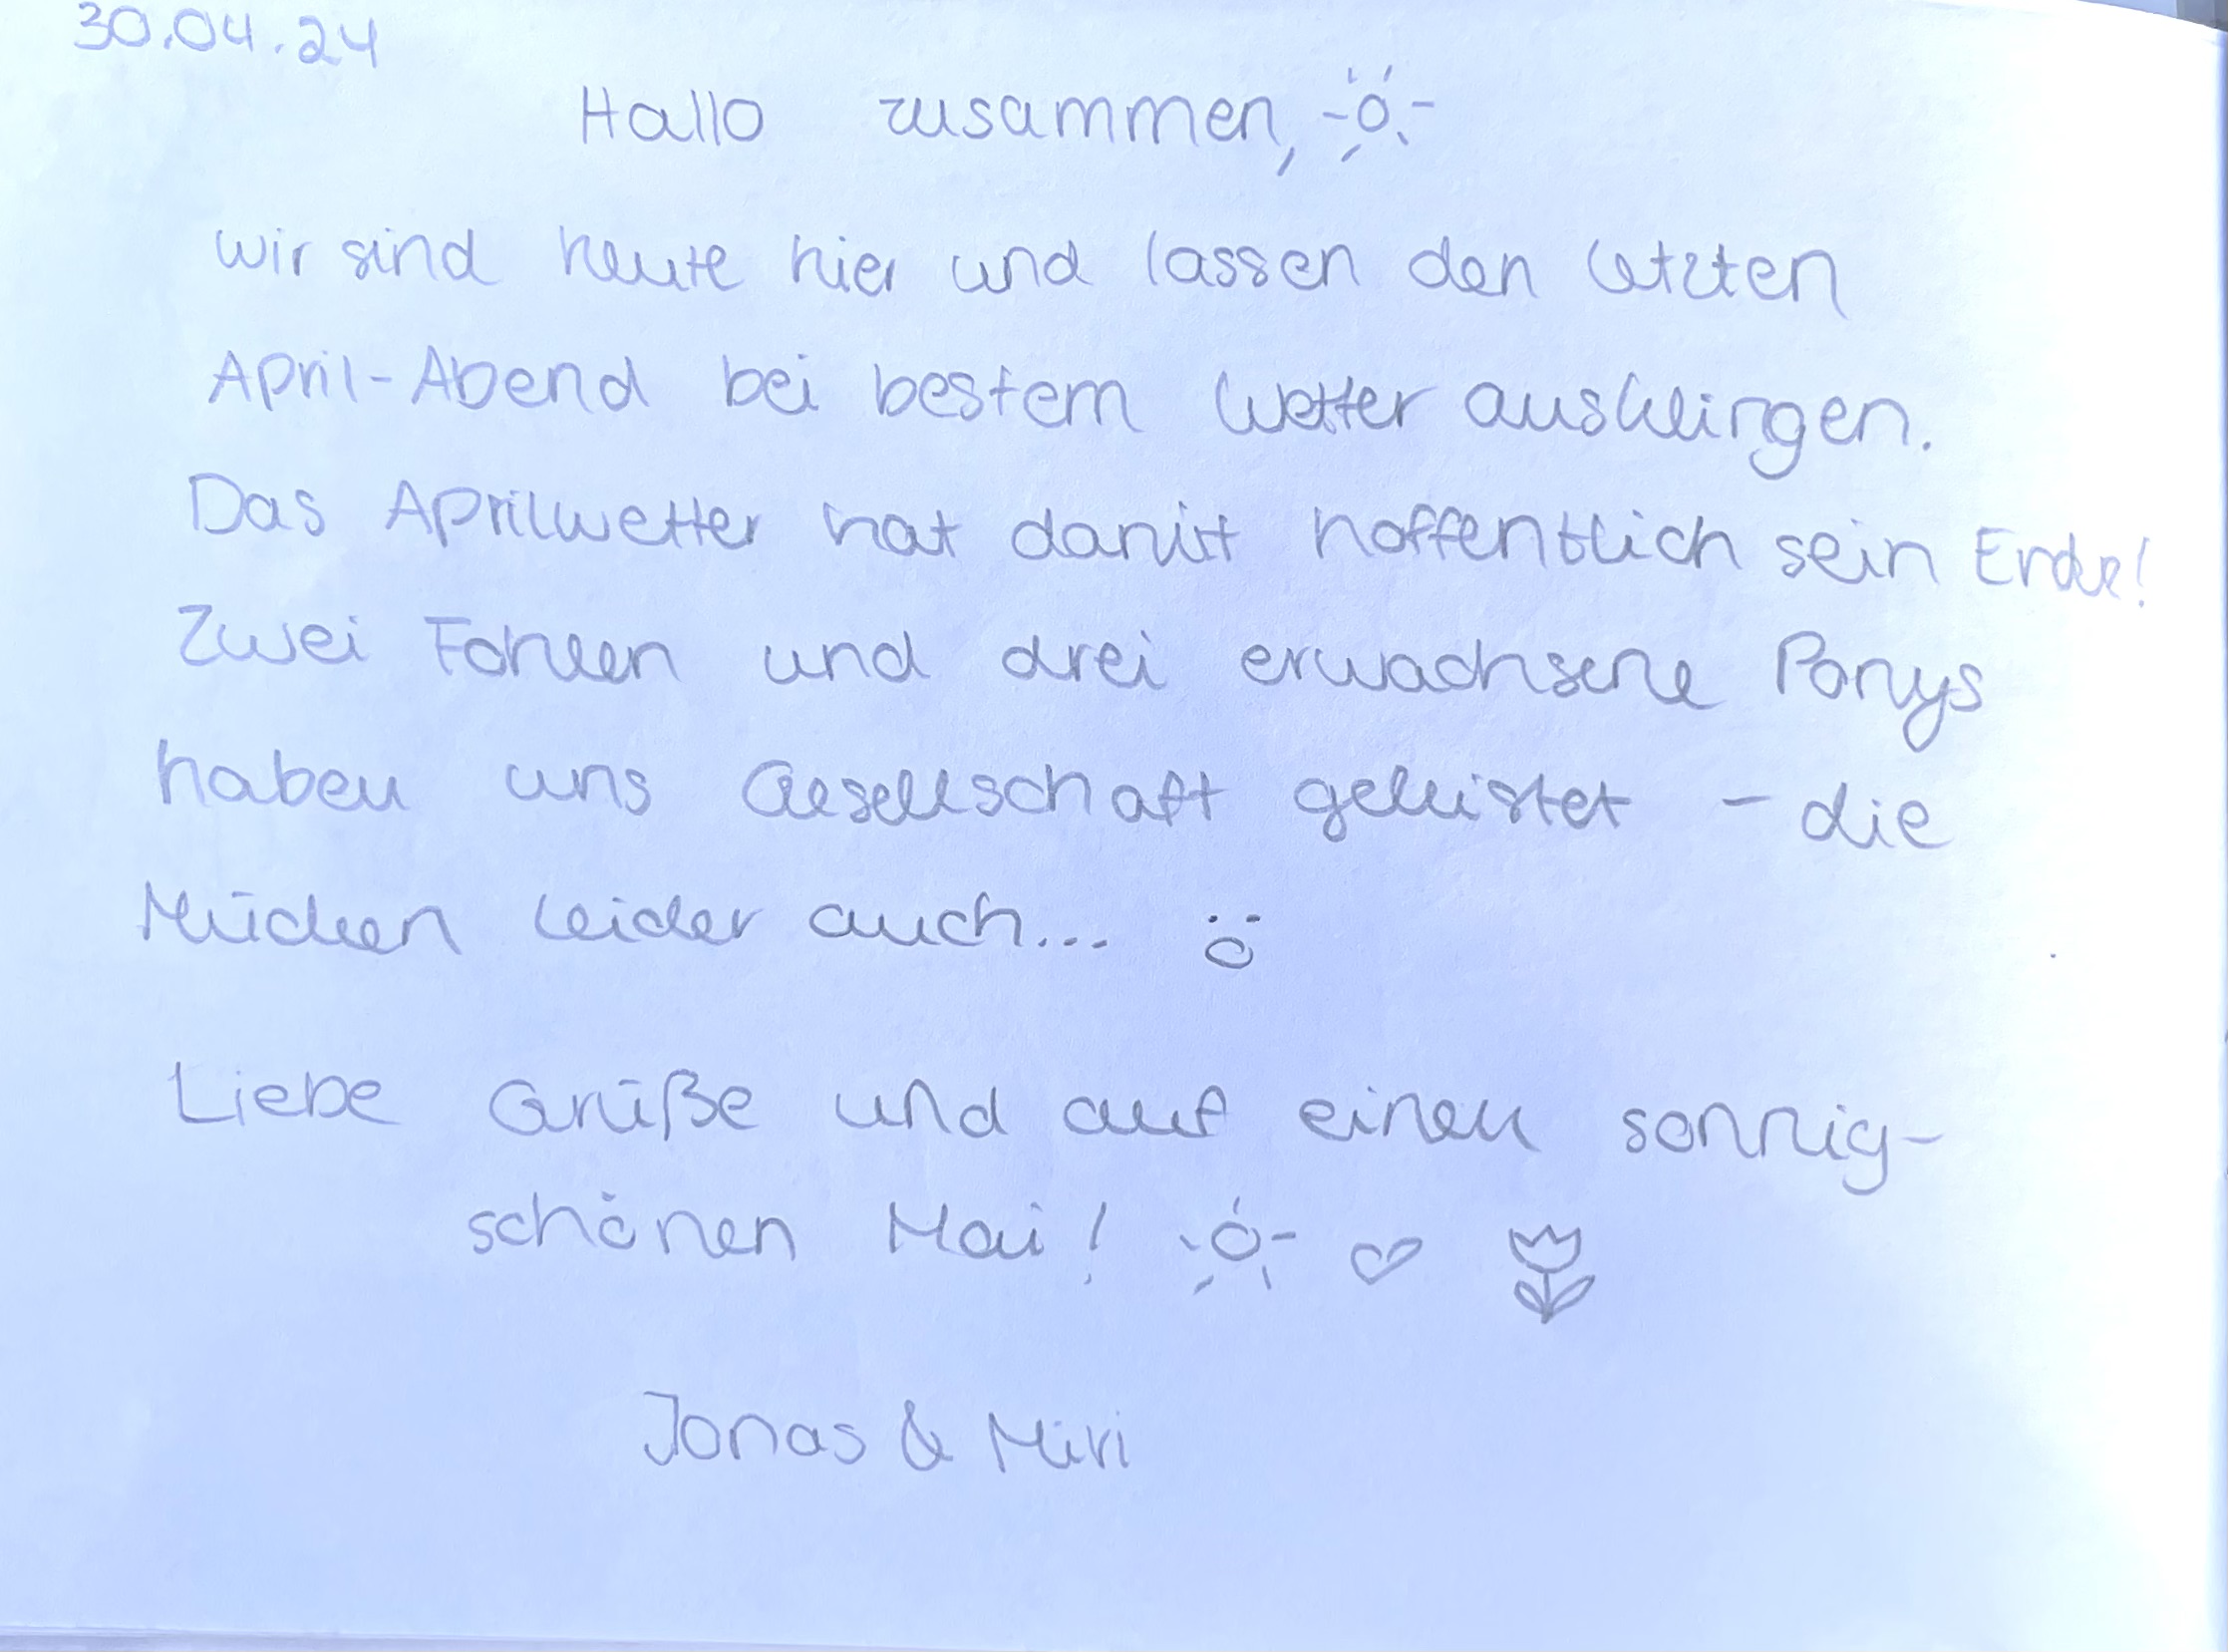 30.04.24
Hallo zusammen,
wir sind heute hier und lassen den letzten
April-Abend bei bestem Wetter ausklingen.
Das Aprilwetter hat damit hoffentlich sein Ende!
Zwei Fohlen und drei erwachsene Ponys
haben uns Gesellschaft geleistet - die
Mücken leider auch...
Liebe Grüße und auf einen sonnig-
schönen Mai!
Jonas & Miri